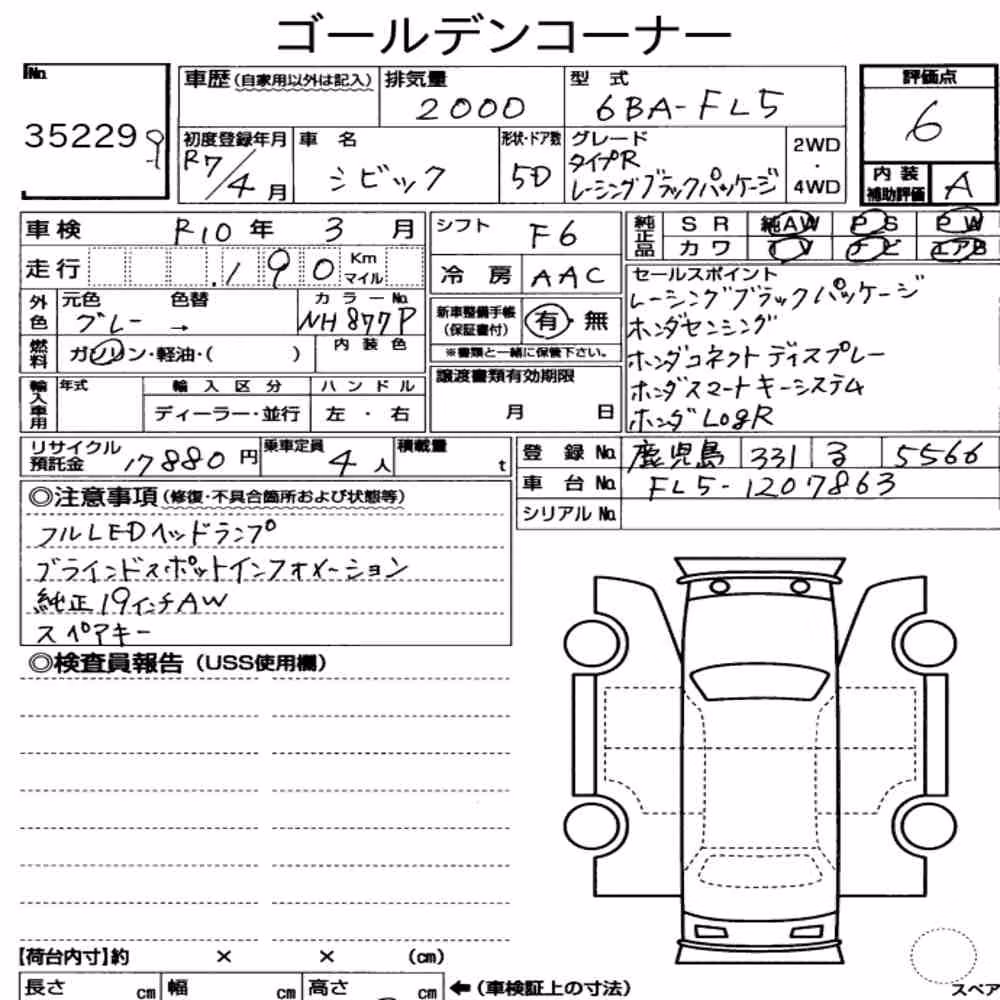 ゴールデンコーナー
No.
35229
車歴（自家用以外は記入）
排気量
2000
型式
6BA-FL5
評価点
6
初度登録年月
R7/4月
車名
シビック
形状・ドア数
5D
グレード
タイプR
レーシングブラックパッケージ
2WD
・
4WD
内装
補助評価
A
車検 R10年 3月
シフト F6
純正品
SR 純AW PS PW
カワ TV ナビ エアB
走行 .190 Km マイル
冷房 AAC
セールスポイント
レーシングブラックパッケージ
ホンダセンシング
ホンダコネクトディスプレー
ホンダスマートキーシステム
ホンダLogR
外色
元色 色替 カラーNo.
グレー → NH877P
新車整備手帳
（保証書付）
有・無
※書類と一緒に保管下さい。
燃料
ガソリン・軽油・（ ）
内装色
譲渡書類有効期限
月 日
輸入車用
年式 輸入区分 ハンドル
ディーラー・並行 左・右
リサイクル
預託金 17880円
乗車定員 4人
積載量 t
登録No. 鹿児島 331 る 5566
車台No. FL5-1207863
シリアルNo.
◎注意事項（修復・不具合箇所および状態等）
フルLEDヘッドランプ
ブラインドスポットインフォメーション
純正19インチAW
スペアキー
◎検査員報告（USS使用欄）
【荷台内寸】約 × × （cm）
長さ cm 幅 cm 高さ cm ←（車検証上の寸法）
スペア